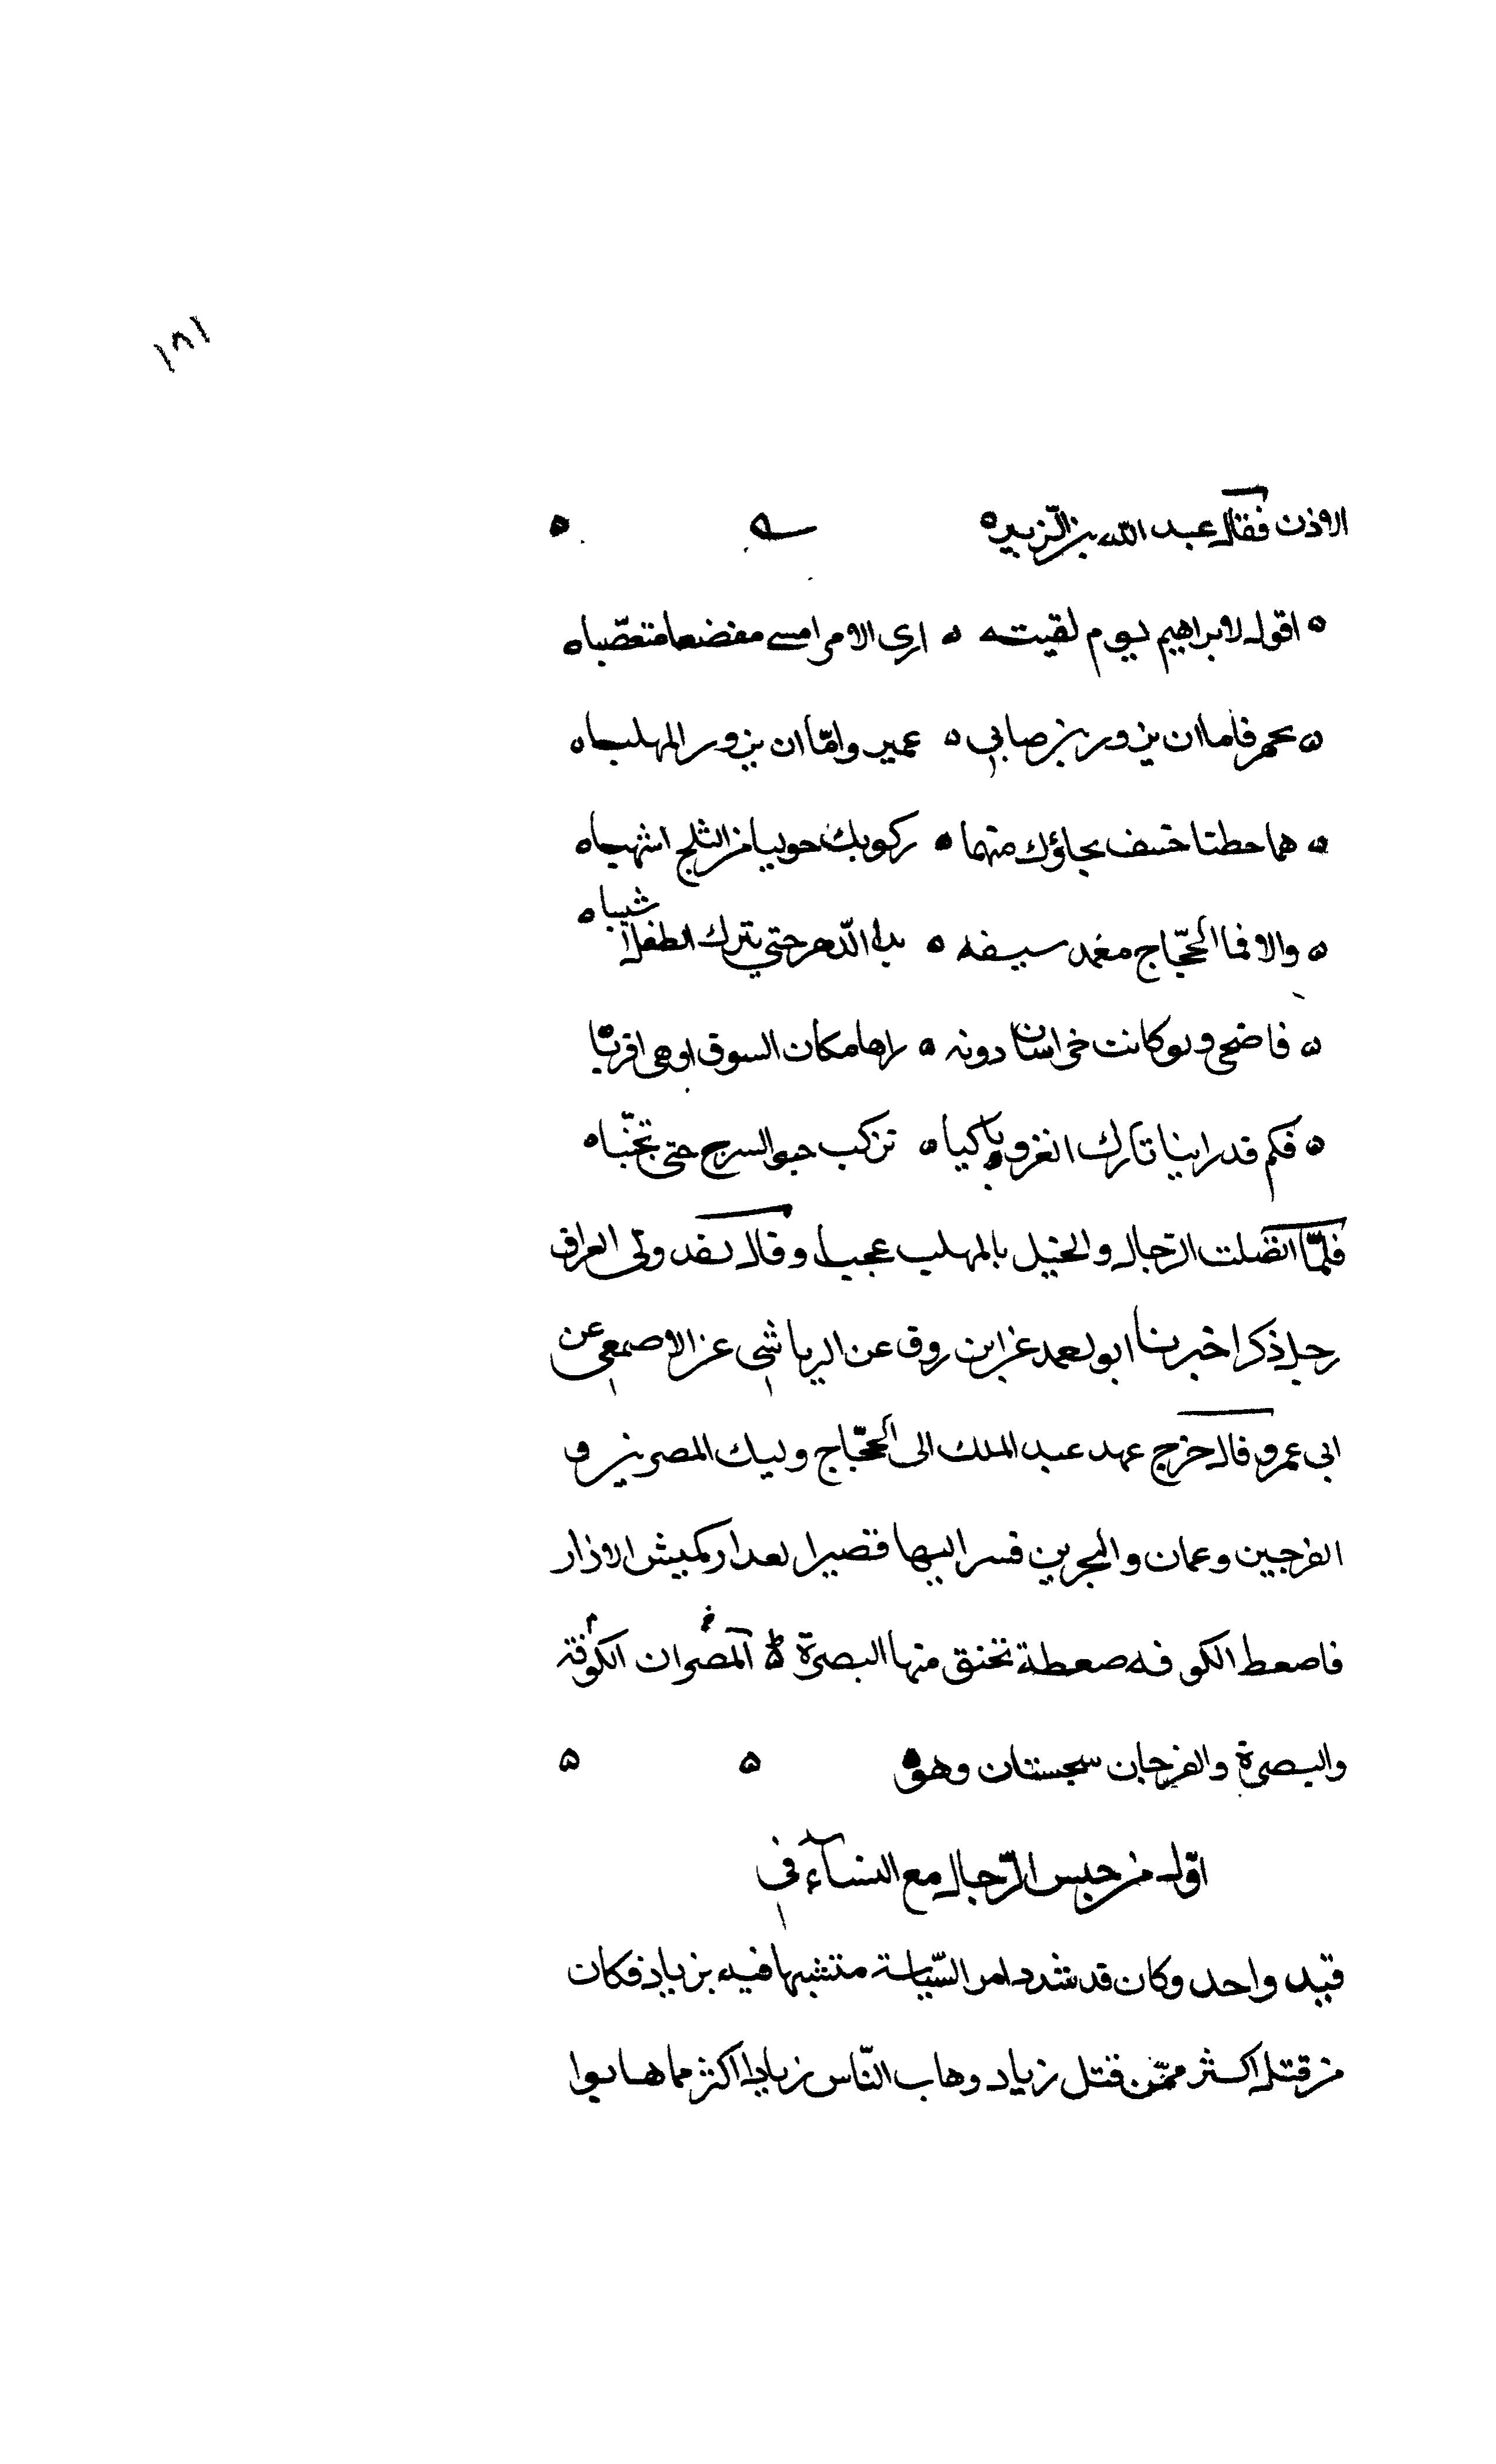 ١٨١
الاذن فقال عبد الله بن الزبيره
ه اقول لابراهيم يوم لقيته ه ارى الامر امسى مفضعا متعصّباه
ه تحمر فاما ان يزور بن صابي ه عمير وامّا ان يزور المهلباه
ه هما حطتا خسف نجاؤك منهما ه ركوبك حوليا من الثلج اشهباه
ه والا فما الحجّاج مغمد سيفه ه يد الدّهر حتى يترك الطفل اشيباه
ه فاضحى ولو كانت خراسان دونه ه راها مكان السوق او هي اقربا
ه فكم قد راينا تارك الغزو باكيا ه تركب حنو السرج حتى تجنّباه
فلمّا اتصلت الرّجال والخيل بالمهلب عجب وقال لقد ولى العراق
رجل ذكر اخبرنا ابو احمد عن ابن روق عن الرياشى عن الاصمعى عن
ابى عمرو قال خرج عهد عبد الملك الى الحجّاج وليك المصرين و
الفرجين وعمان والبحرين فسر اليها قصير العذار كميش الازار
فاصعط الكوفه صعطة تخنق منها البصرة ه المصران الكوفة
والبصرة والفرجان سجستان وهو ه ه
اوّل من حبس الرّجال مع النساء فى
قيد واحد وكان قد شدد امر السّياسة متشبها فيه بزياد فكان
من قتل اكثر ممّن قتل زياد وهاب النّاس زيادا اكثر مما هابوا